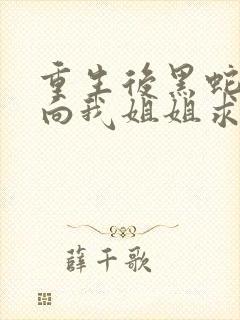 重生後黑蛇
向我姐姐求
薛千歌